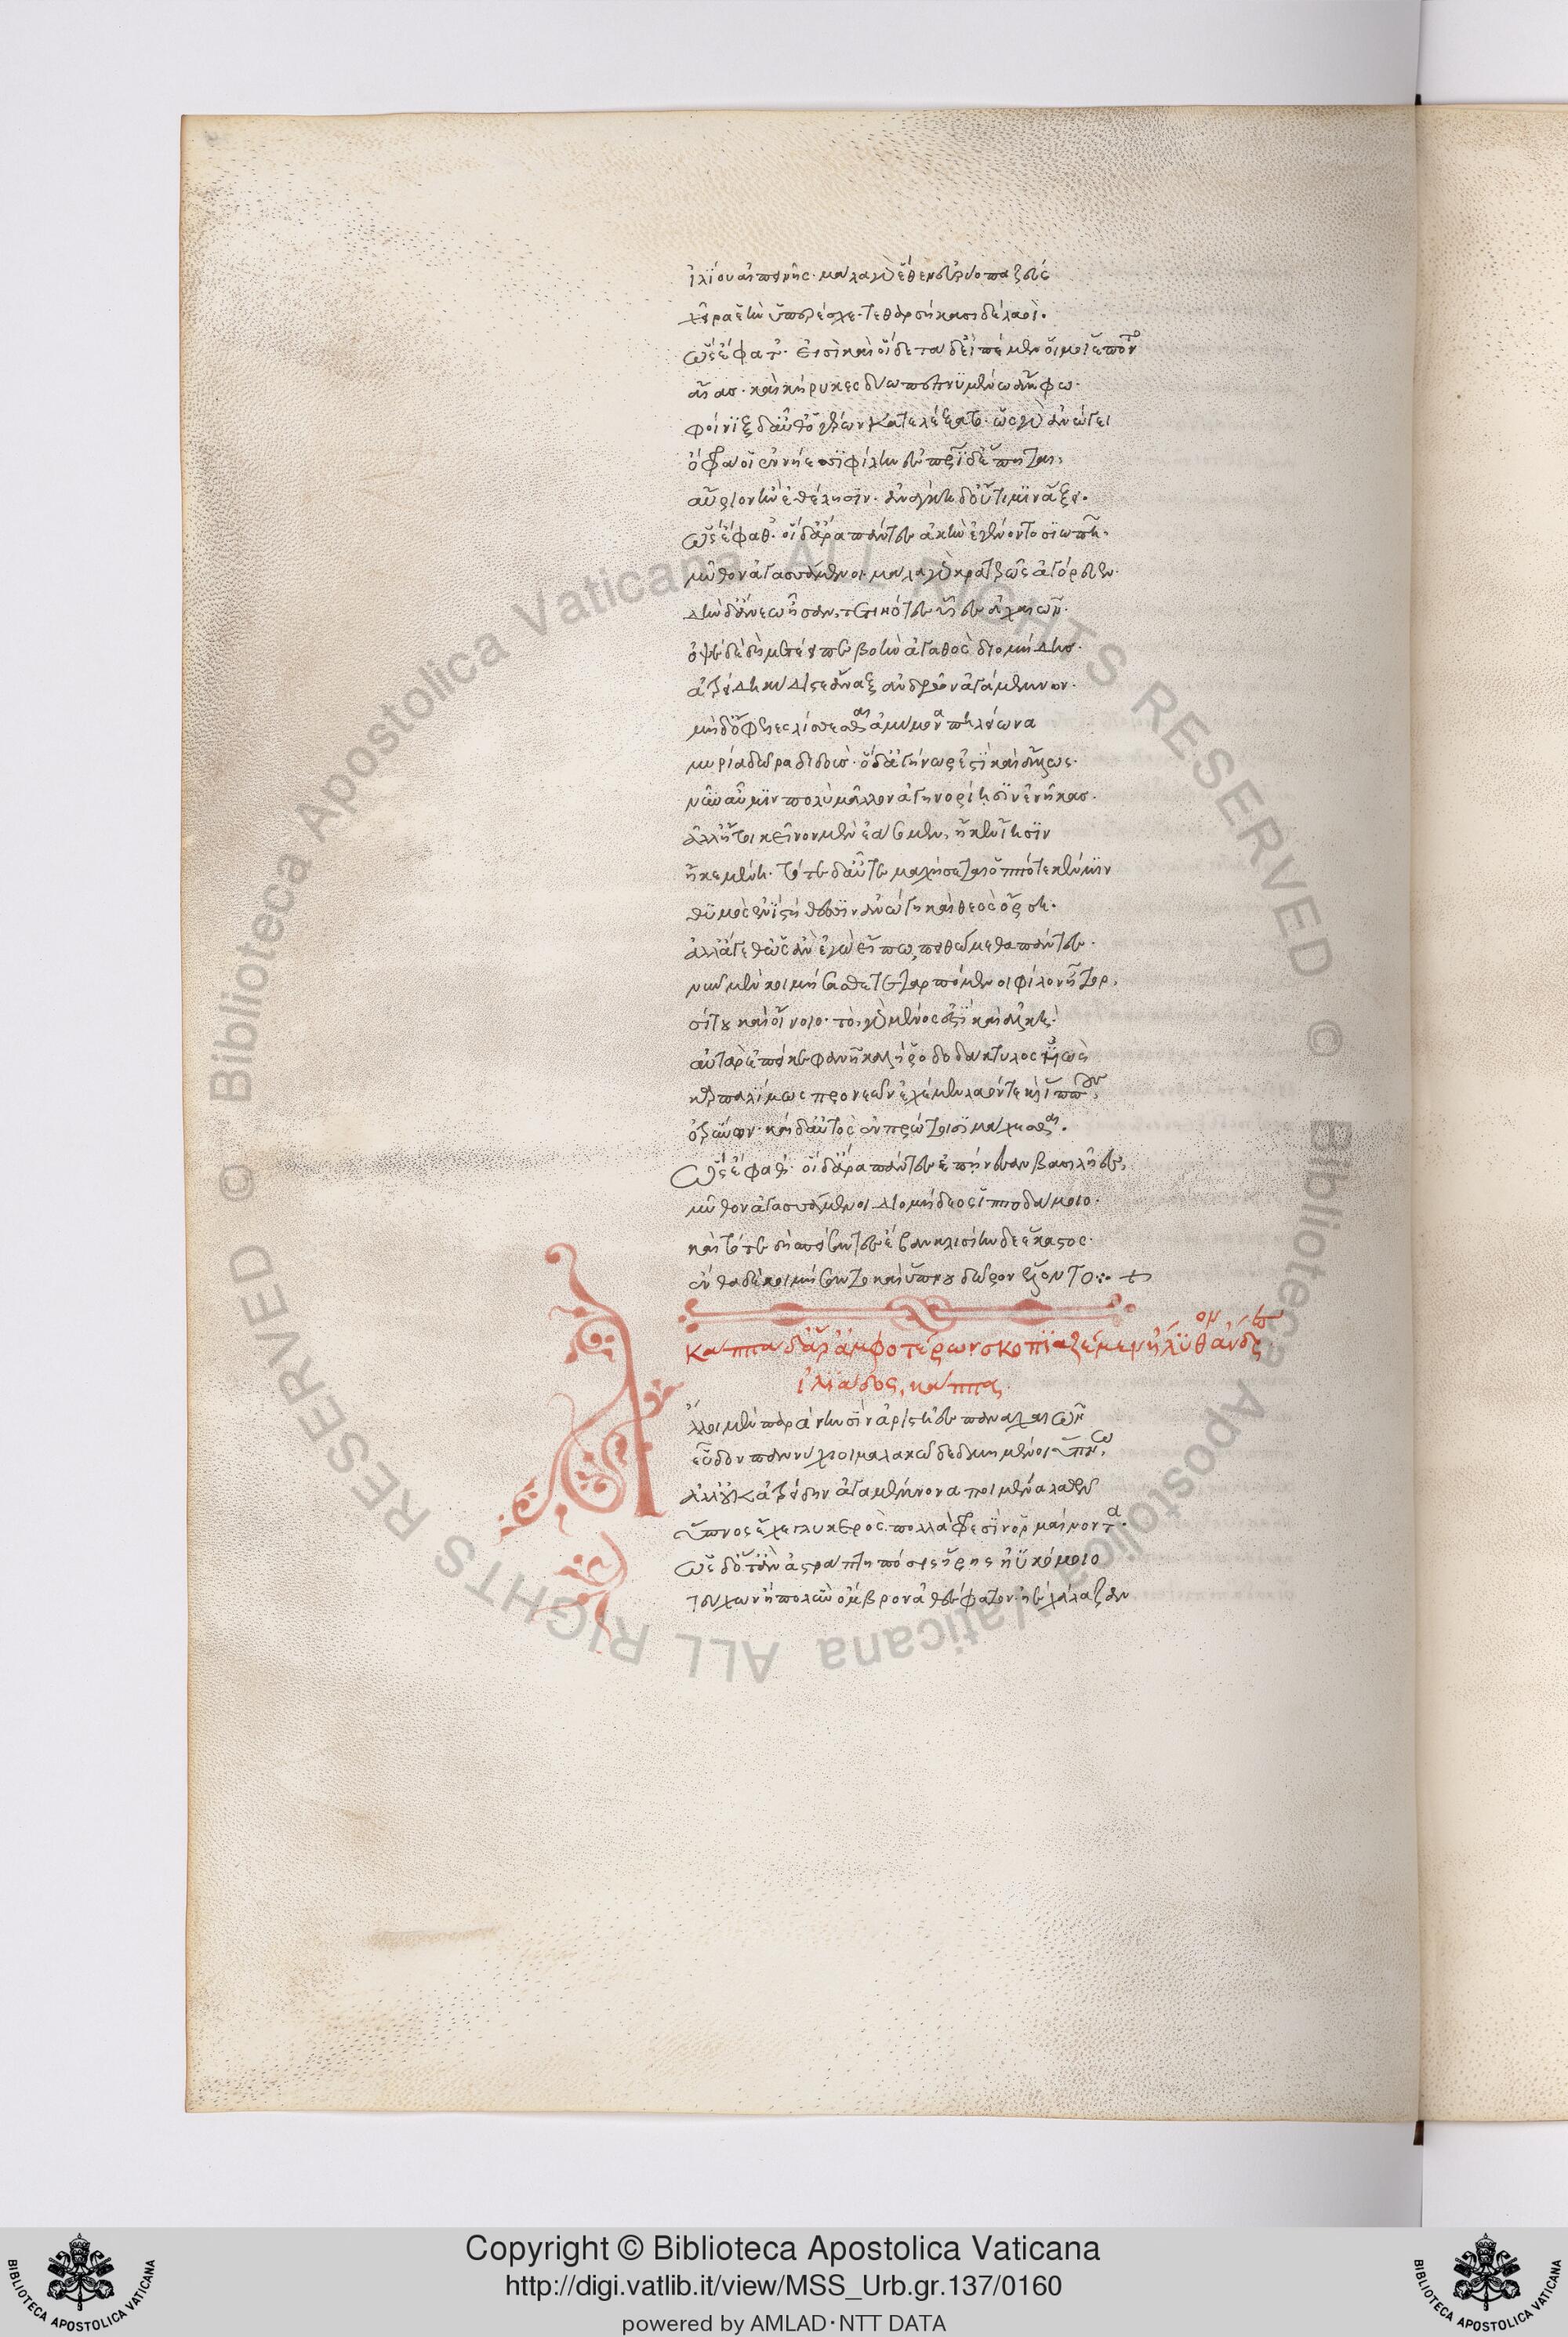 ἰλίου αἰπεινῆς· μάλα γὰρ ἕθεν εὐρύοπα ζεὺς
χεῖρα ἑὴν ὑπερέσχε· τεθαρσήκασι δὲ λαοί.
ὣς ἔφατ'· εἰσὶ καὶ οἵδε τάδ' εἰπέμεν οἵ μοι ἕποντο
αἴας· καὶ κήρυκες δύω πεπνυμένω ἄμφω·
φοίνιξ δ' αὖθ' ὁ γέρων κατελέξατο· ὣς γὰρ ἀνώγει
ὄφρα οἱ ἐν νήεσσι φίλην ἐς πατρίδ' ἕπηται,
αὔριον ἢν ἐθέλησιν· ἀνάγκη δ' οὔτι μιν ἄξει.
ὣς ἔφαθ'· οἱ δ' ἄρα πάντες ἀκὴν ἐγένοντο σιωπῆ,
μῦθον ἀγασσάμενοι· μάλα γὰρ κρατερῶς ἀγόρευσεν·
δὴν δ' ἄνεω ἦσαν, τετιηότες υἷες ἀχαιῶν·
ὀψὲ δὲ δὴ μετέειπε βοὴν ἀγαθὸς διομήδης·
ἀτρείδη κύδιστε ἄναξ ἀνδρῶν ἀγάμεμνον·
μὴ δ' ὄφελες λίσσεσθαι ἀμύμονα πηλείωνα
μυρία δῶρα διδούς· ὁ δ' ἀγήνωρ ἐστὶ καὶ ἄλλως·
νῦν αὖ μιν πολὺ μᾶλλον ἀγηνορίησιν ἐνῆκας·
ἀλλ' ἤτοι κεῖνον μὲν ἐάσομεν, ἤ κεν ἴησιν
ἤ κε μένη· τότε δ' αὖτε μαχήσεται ὁππότε κέν μιν
θυμὸς ἐνὶ στήθεσσιν ἀνώγη καὶ θεὸς ὄρση·
ἀλλ' ἄγεθ' ὡς ἂν ἐγὼ εἴπω, πειθώμεθα πάντες·
νῦν μὲν κοιμήσασθε τεταρπόμενοι φίλον ἦτορ,
σίτου καὶ οἴνοιο· τὸ γὰρ μένος ἐστὶ καὶ ἀλκή·
αὐτὰρ ἐπεί κε φανῆ καλὴ ῥοδοδάκτυλος ἠὼς
καρπαλίμως πρὸ νεῶν ἐχέμεν λαόν τε καὶ ἵππους,
ὀτρύνων· καὶ δ' αὐτὸς ἐν πρώτοισι μάχεσθαι.
ὣς ἔφαθ'· οἱ δ' ἄρα πάντες ἐπήνεσαν βασιλῆες,
μῦθον ἀγασσάμενοι διομήδεος ἱπποδάμοιο·
καὶ τότε δὴ σπείσαντες ἔβαν κλισίην δὲ ἕκαστος·
ἔνθα δὲ κοιμήσαντο καὶ ὕπνου δῶρον ἕλοντο :· +
κάππα δ' ἄρ' ἀμφοτέρων σκοπιαζέμεν ἤλυθον ἄνδρες
ἰλιάδος, κάππα
ἄλλοι μὲν παρὰ νηυσὶν ἀριστῆες παναχαιῶν
εὗδον παννύχιοι μαλακῶ δεδμημένοι ὕπνω,
ἀλλ' οὐκ ἀτρείδην ἀγαμέμνονα ποιμένα λαῶν
ὕπνος ἔχε γλυκερὸς πολλὰ φρεσὶν ὁρμαίνοντα·
ὡς δ' ὅτ' ἂν ἀστράπτη πόσις ἥρης ἠϋκόμοιο
τεύχων ἢ πολὺν ὄμβρον ἀθέσφατον· ἠὲ χάλαζαν
Copyright © Biblioteca Apostolica Vaticana
http://digi.vatlib.it/view/MSS_Urb.gr.137/0160
powered by AMLAD·NTT DATA
© Biblioteca Apostolica Vaticana ALL RIGHTS RESERVED
© Biblioteca Apostolica Vaticana ALL RIGHTS RESERVED
BIBLIOTECA APOSTOLICA VATICANA
BIBLIOTECA APOSTOLICA VATICANA